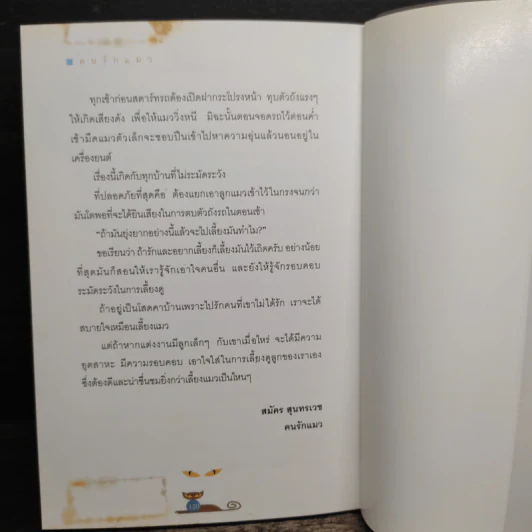 คนรักแมว
ทุกเช้าก่อนสตาร์ทรถต้องเปิดฝากระโปรงหน้า ทุบตัวถังแรงๆ
ให้เกิดเสียงดัง เพื่อให้แมววิ่งหนี มิฉะนั้นตอนจอดรถไว้ตอนค่ำ
เช้ามืดแมวตัวเล็กจะชอบปีนเข้าไปหาความอุ่นแล้วนอนอยู่ใน
เครื่องยนต์
เรื่องนี้เกิดกับทุกบ้านที่ไม่ระมัดระวัง
ที่ปลอดภัยที่สุดคือ ต้องแยกเอาลูกแมวเข้าไว้ในกรงจนกว่า
มันโตพอที่จะได้ยินเสียงในการตบตัวถังรถในตอนเช้า
"ถ้ามันยุ่งยากอย่างนี้แล้วจะไปเลี้ยงมันทำไม?"
ขอเรียนว่า ถ้ารักและอยากเลี้ยงก็เลี้ยงมันไว้เถิดครับ อย่างน้อย
ที่สุดมันก็สอนให้เรารู้จักเอาใจคนอื่น และยังให้รู้จักรอบคอบ
ระมัดระวังในการเลี้ยงดู
ถ้าอยู่เป็นโสดคาบ้านเพราะไปรักคนที่เขาไม่ได้รัก เราจะได้
สบายใจเหมือนเลี้ยงแมว
แต่ถ้าหากแต่งงานมีลูกเล็กๆ กับเขาเมื่อไหร่ จะได้มีความ
อุตสาหะ มีความรอบคอบ เอาใจใส่ในการเลี้ยงดูลูกของเราเอง
ซึ่งต้องดีและน่าชื่นชมยิ่งกว่าเลี้ยงแมวเป็นไหนๆ
สมัคร สุนทรเวช
คนรักแมว